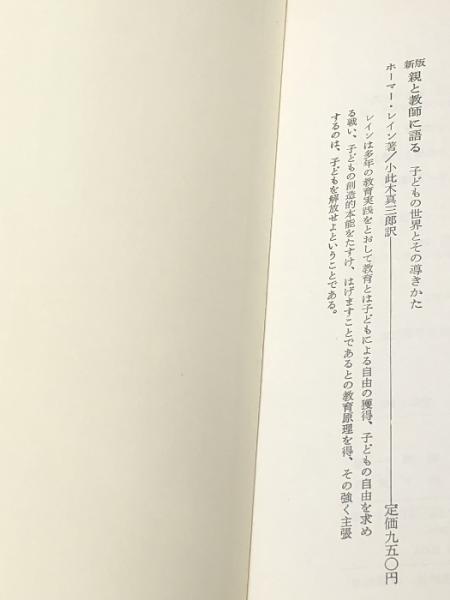 新版 親と教師に語る 子どもの世界とその導きかた
ホーマー・レイン著／小此木真三郎訳――定価九五〇円
レインは多年の教育実践をとおして教育とは子どもによる自由の獲得、子どもの自由を求め
る戦い、子どもの創造的本能をたすけ、はげますことであるとの教育原理を得、その強く主張
するのは、子どもを解放せよということである。